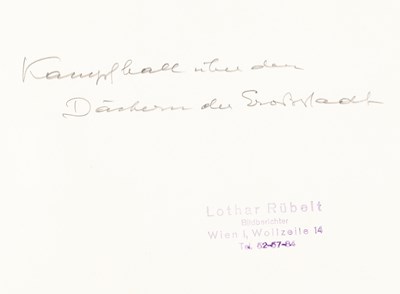 Kampfball über den
Dächern der Großstadt
Lothar Rübelt
Bildberichter
Wien I, Wollzeile 14
Tel. 62-67-64